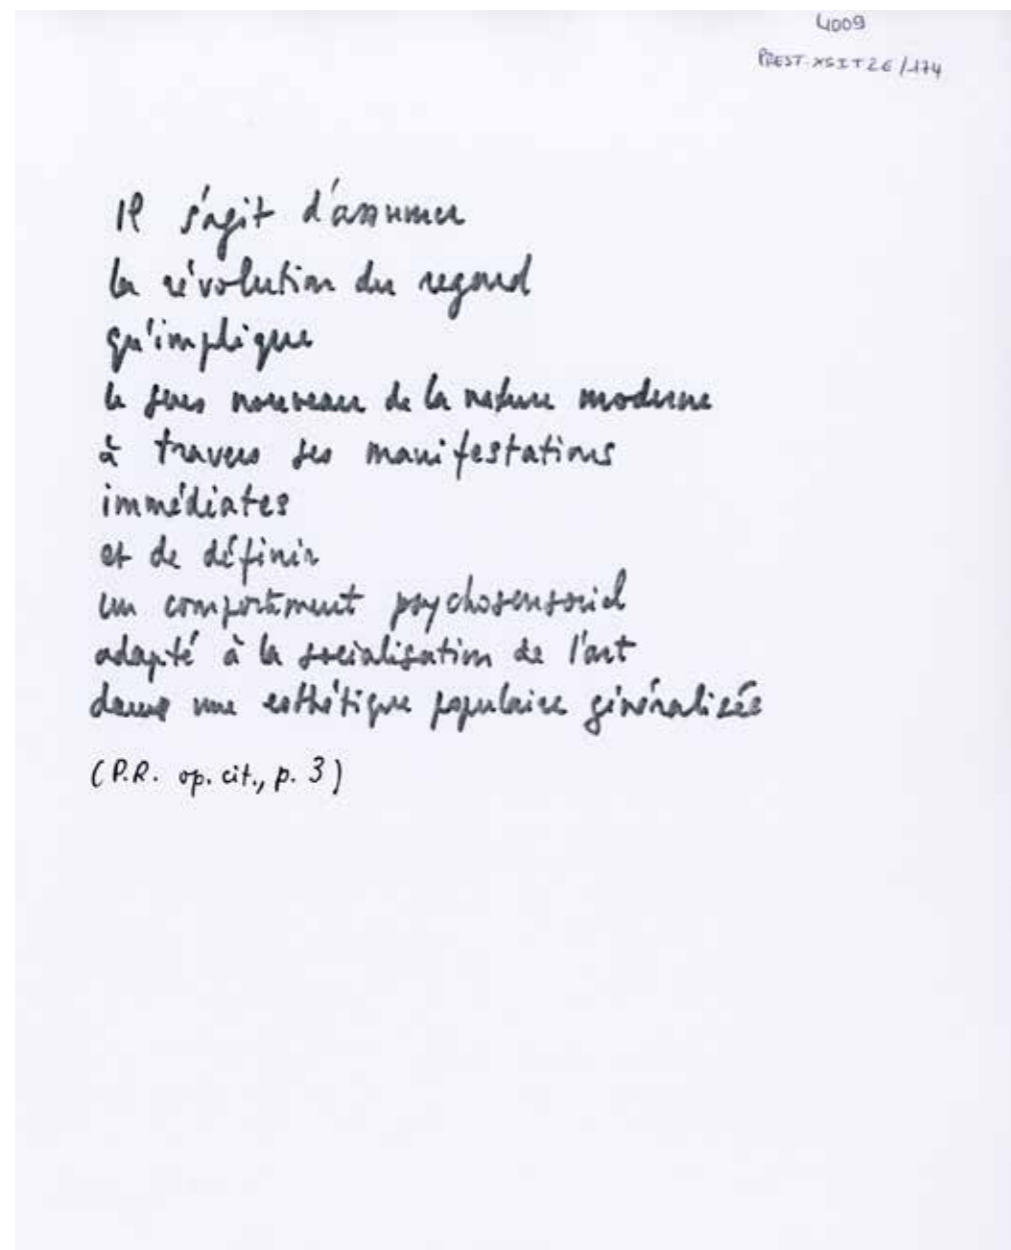 4009
PREST. XSIT 26/174
Il s'agit d'assumer
la révolution du regard
qu'implique
le sens nouveau de la nature moderne
à travers ses manifestations
immédiates
et de définir
un comportement psychosensoriel
adapté à la socialisation de l'art
dans une esthétique populaire généralisée
(P.R. op. cit., p. 3)